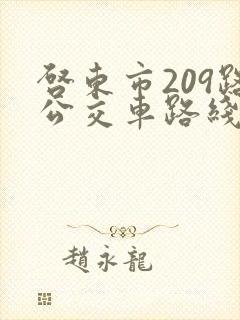 啓東市209路
公交車路綫
趙永龍